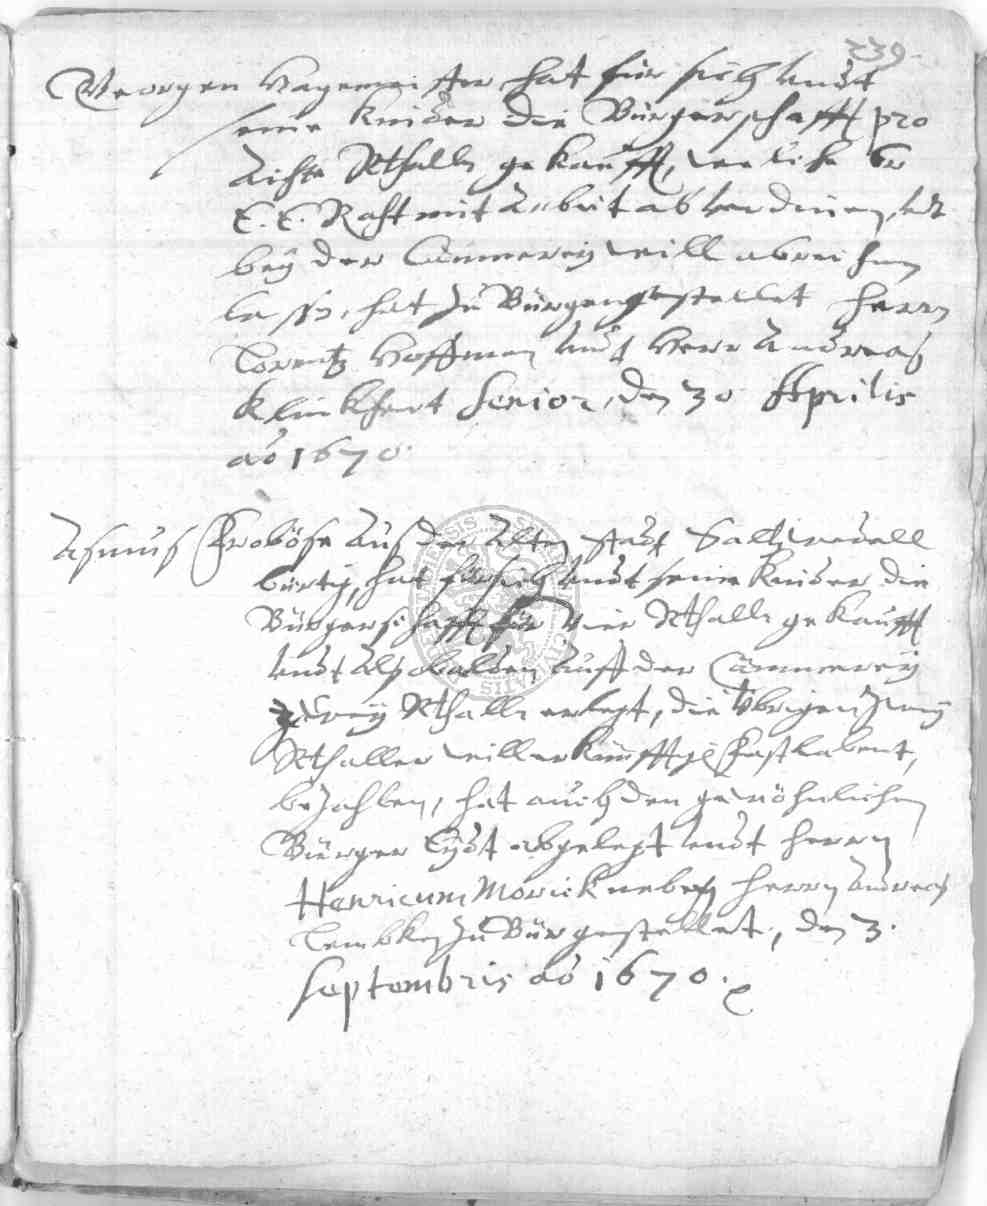 339.
Georgen Hagemeister, hat für sich undt
seine Kinder die Bürgerschafft pro
Achte Rthalle gekaufft, welche Er
E. E. Raht mit Arbeit ab verdienen, und
bey der Cämmerey will abreichen
lassen, hat zu Bürgen gestellet Herrn
Lorentz Hoffman undt Herr Andreas
Klinkhart Senior, den 30 Aprilis
aô 1670.
Asmus Froböse Auß der Alten Stadt Saltzwedell
bürtig, hat für sich undt seine Kinder die
Bürgerschafft für vier Rthalle gekaufft
undt Alsobalden auff der Cämmerey
zwey Rthalle erlegt, die übrigen zwey
Rthaller will er künfftig Fastlabent,
bezahlen, hat auch den gewöhnlichen
Bürger Eydt abgelegt undt Herrn
Henricum Morick nebest Herrn Andreas
Lembken zu Bürgestellet, den 3.
Septembris aô 1670.